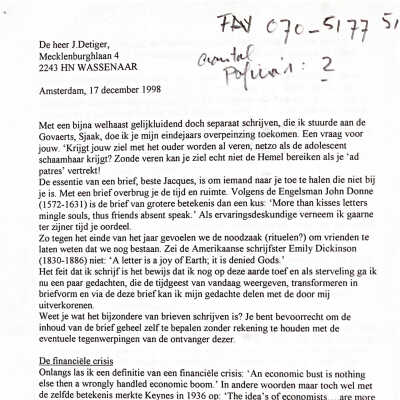 FAX 070-5177 51
aantal
Pagina's: 2
De heer J.Detiger,
Mecklenburghlaan 4
2243 HN WASSENAAR
Amsterdam, 17 december 1998
Met een bijna welhaast gelijkluidend doch separaat schrijven, die ik stuurde aan de
Govaerts, Sjaak, doe ik je mijn eindejaars overpeinzing toekomen. Een vraag voor
jouw. 'Krijgt jouw ziel met het ouder worden al veren, netzo als de adolescent
schaamhaar krijgt? Zonde veren kan je ziel echt niet de Hemel bereiken als je 'ad
patres' vertrekt!
De essentie van een brief, beste Jacques, is om iemand naar je toe te halen die niet bij
je is. Met een brief overbrug je de tijd en ruimte. Volgens de Engelsman John Donne
(1572-1631) is de brief van grotere betekenis dan een kus: 'More than kisses letters
mingle souls, thus friends absent speak.' Als ervaringsdeskundige verneem ik gaarne
ter zijner tijd je oordeel.
Zo tegen het einde van het jaar gevoelen we de noodzaak (rituelen?) om vrienden te
laten weten dat we nog bestaan. Zei de Amerikaanse schrijfster Emily Dickinson
(1830-1886) niet: 'A letter is a joy of Earth; it is denied Gods.'
Het feit dat ik schrijf is het bewijs dat ik nog op deze aarde toef en als sterveling ga ik
nu een paar gedachten, die de tijdgeest van vandaag weergeven, transformeren in
briefvorm en via de deze brief kan ik mijn gedachte delen met de door mij
uitverkorenen.
Weet je wat het bijzondere van brieven schrijven is? Je bent bevoorrecht om de
inhoud van de brief geheel zelf te bepalen zonder rekening te houden met de
eventuele tegenwerpingen van de ontvanger dezer.
De financiële crisis
Onlangs las ik een definitie van een financiële crisis: 'An economic bust is nothing
else then a wrongly handled economic boom.' In andere woorden maar toch wel met
de zelfde betekenis merkte Keynes in 1936 op: 'The idea's of economists....are more